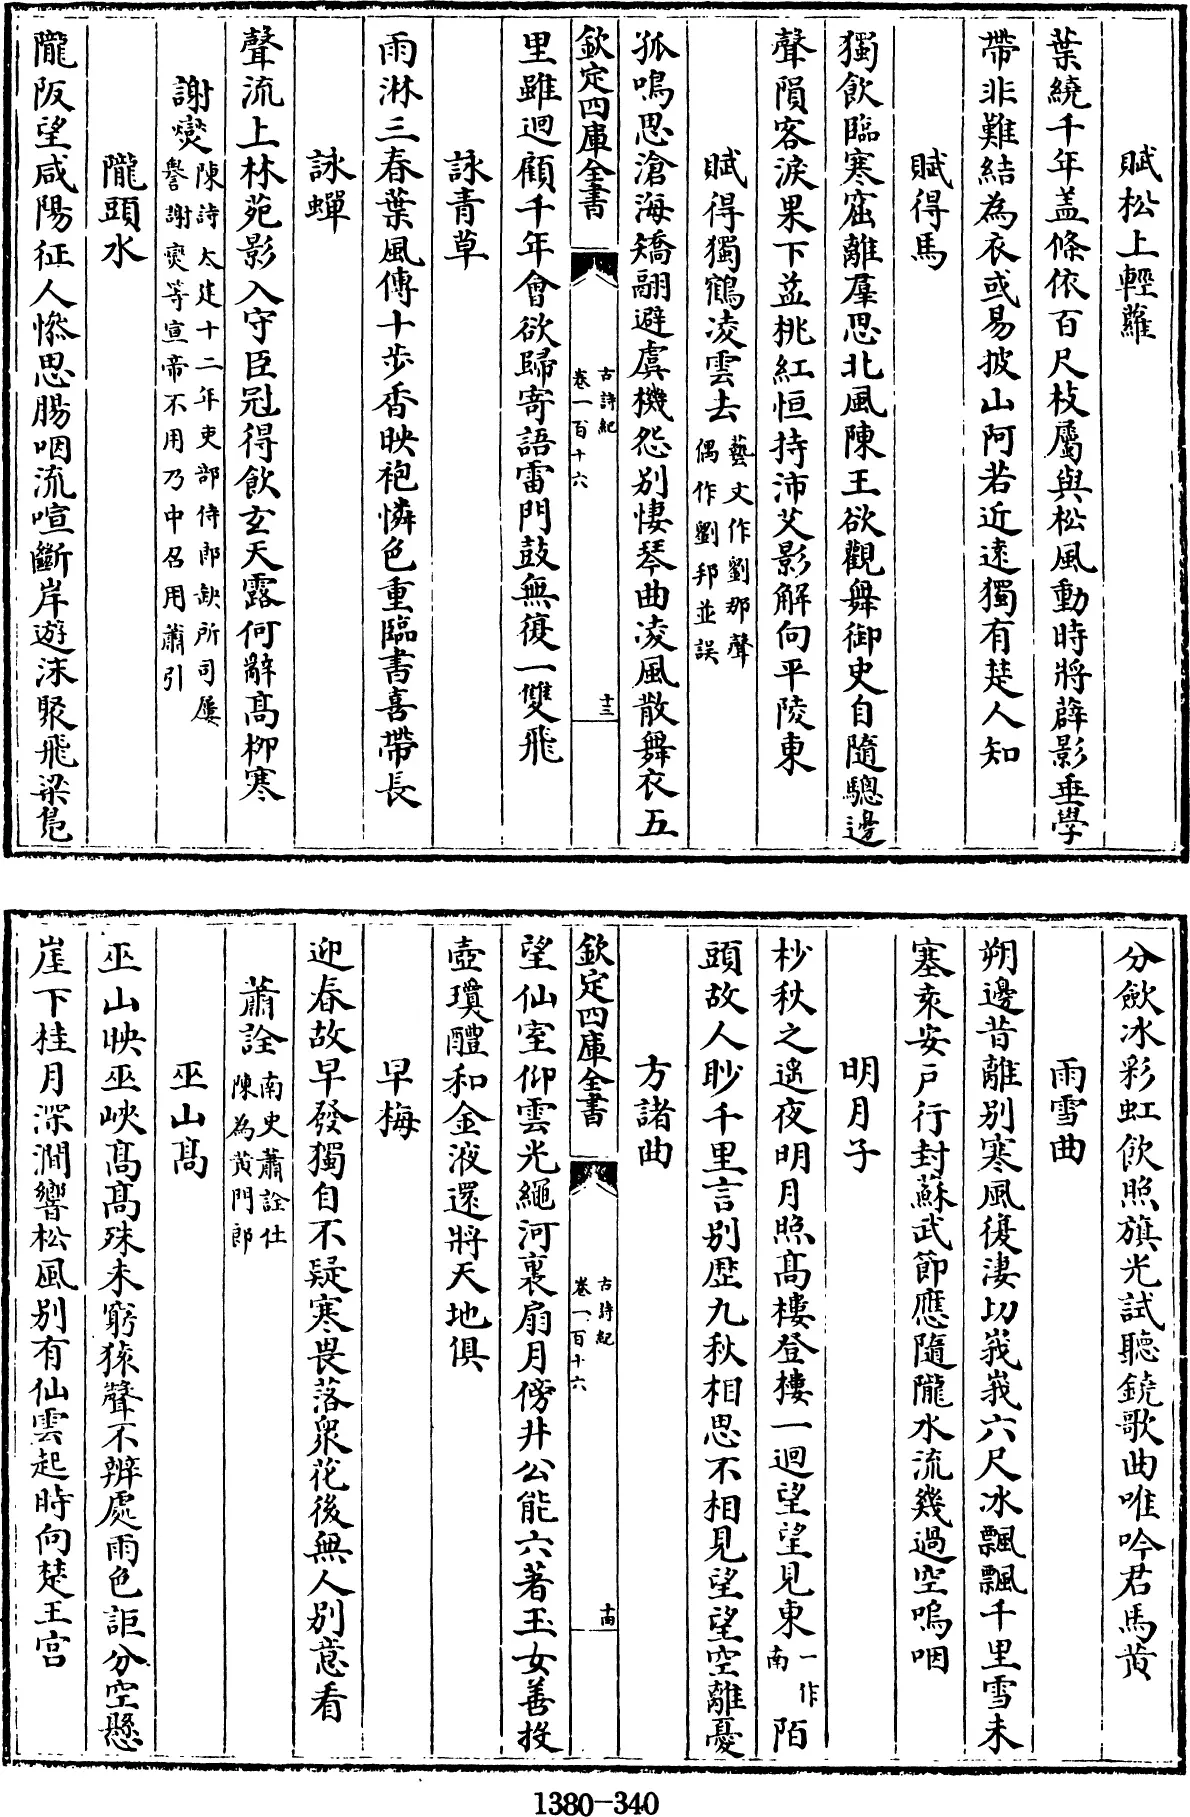 賦松上輕蘿
葉繞千年盖條依百尺枝屬與松風動時將薜影垂學
帶非難結為衣或易披山阿若近逺獨有楚人知
賦得馬
獨飲臨寒窟離羣思北風陳王欲觀舞御史自隨驄邊
聲隕客淚果下益桃紅恒持沛艾影解向平陵東
賦得獨鶴凌雲去藝文作劉那聲
偶作劉邦並誤
孤鳴思滄海矯翮避虞機怨别悽琴曲凌風散舞衣五
欽定四庫全書
古詩紀
卷一百十六
十三
里雖迴顧千年會欲歸寄語雷門鼓無復一雙飛
詠青草
雨淋三春葉風傳十步香映袍憐色重臨書喜帶長
詠蟬
聲流上林苑影入守臣冠得飲玄天露何辭髙柳寒
謝爕陳詩太建十二年吏部侍郎缺所司屢
譽謝爕等宣帝不用乃中召用蕭引
隴頭水
隴阪望咸陽征人慘思腸咽流喧斷岸遊沫聚飛梁鳬
分歛冰彩虹飲照旗光試聴鐃歌曲唯吟君馬黄
雨雪曲
朔邊昔離别寒風復淒切峩峩六尺冰飄飄千里雪未
塞袁安户行封蘇武節應隨隴水流幾過空嗚咽
明月子
杪秋之遥夜明月照髙樓登樓一迴望望見東一作
南陌
頭故人眇千里言别歴九秋相思不相見望望空離憂
方諸曲
欽定四庫全書
古詩紀
卷一百十六
十四
望仙室仰雲光繩河裏扇月傍井公能六著玉女善投
壺瓊醴和金液還將天地俱
早梅
迎春故早發獨自不疑寒畏落衆花後無人别意看
蕭詮南史蕭詮仕
陳為黄門郎
巫山髙
巫山映巫峽髙髙殊未窮猿聲不辨處雨色詎分空懸
崖下桂月深澗響松風别有仙雲起時向楚王宫
1380-340